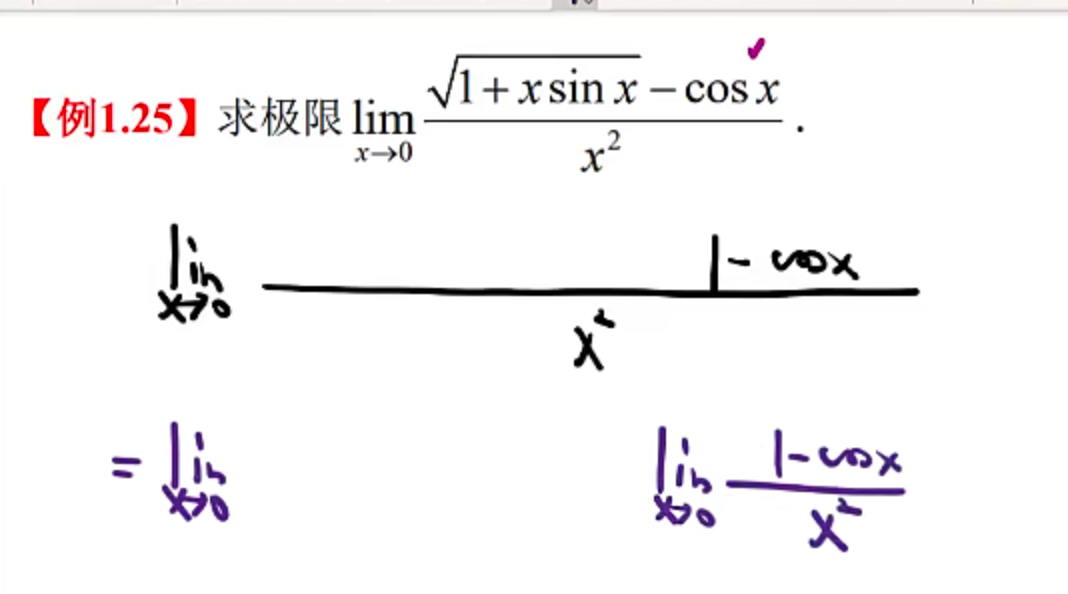 【例1.25】求极限 lim x→0 (√(1+x sin x) − cos x) / x² .
lim x→0 (1 - cosx) / x²
= lim x→0    lim x→0 (1 - cosx) / x²